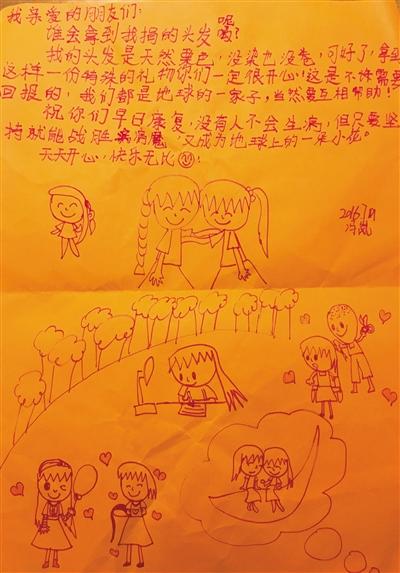 我亲爱的朋友们:
谁会拿到我捐的头发呢?
我的头发是天然栗色,没染也没卷,可好了,拿到
这样一份特殊的礼物你们一定很开心!这是不许需要
回报的,我们都是地球的一家子,当然要互相帮助!
祝你们早日康复,没有人不会生病,但只要坚
持就能战胜病魔,又成为地球上的一朵小花。
天天开心,快乐无比
冯岚